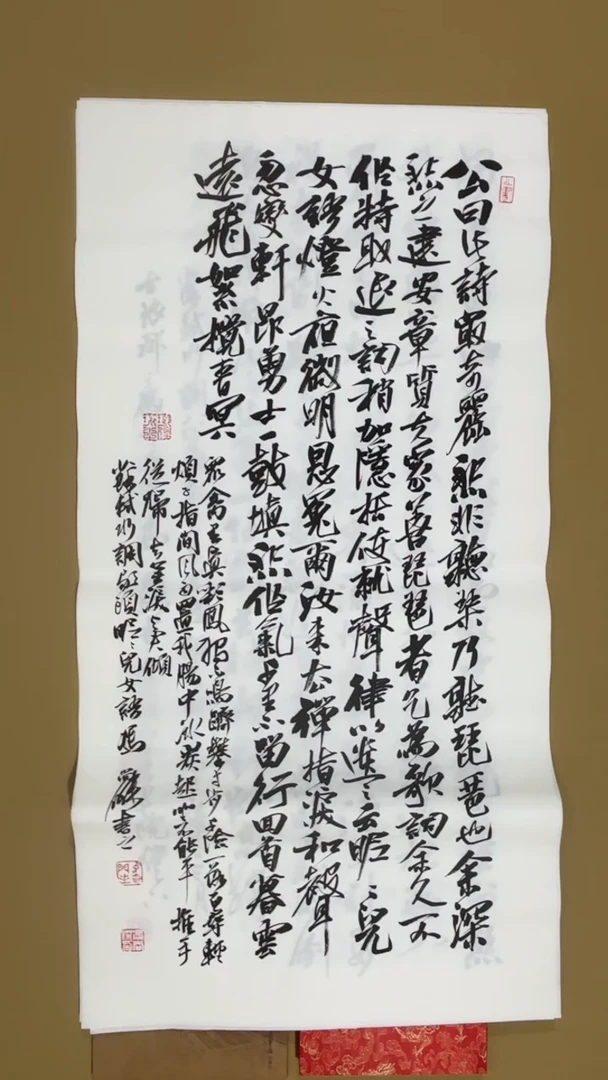 公曰此詩最奇麗然非聽琴乃聽琵琶也余深
然之建安章質夫家善琵琶者乞為歌詞余久不
作特取退之詞稍加隱括使就聲律以遺之云昵昵兒
女語燈火夜微明恩冤爾汝來去彈指淚和聲
忽變軒昂勇士一鼓填然作氣千里不留行回首暮雲
遠飛絮攪青冥
眾禽里真彩鳳獨不鳴躋攀寸步千險一落百尋輕
煩子指間風雨置我腸中冰炭起坐不能平 推手
從歸去無淚與君傾
蘇軾水調歌頭昵昵兒女語 書之